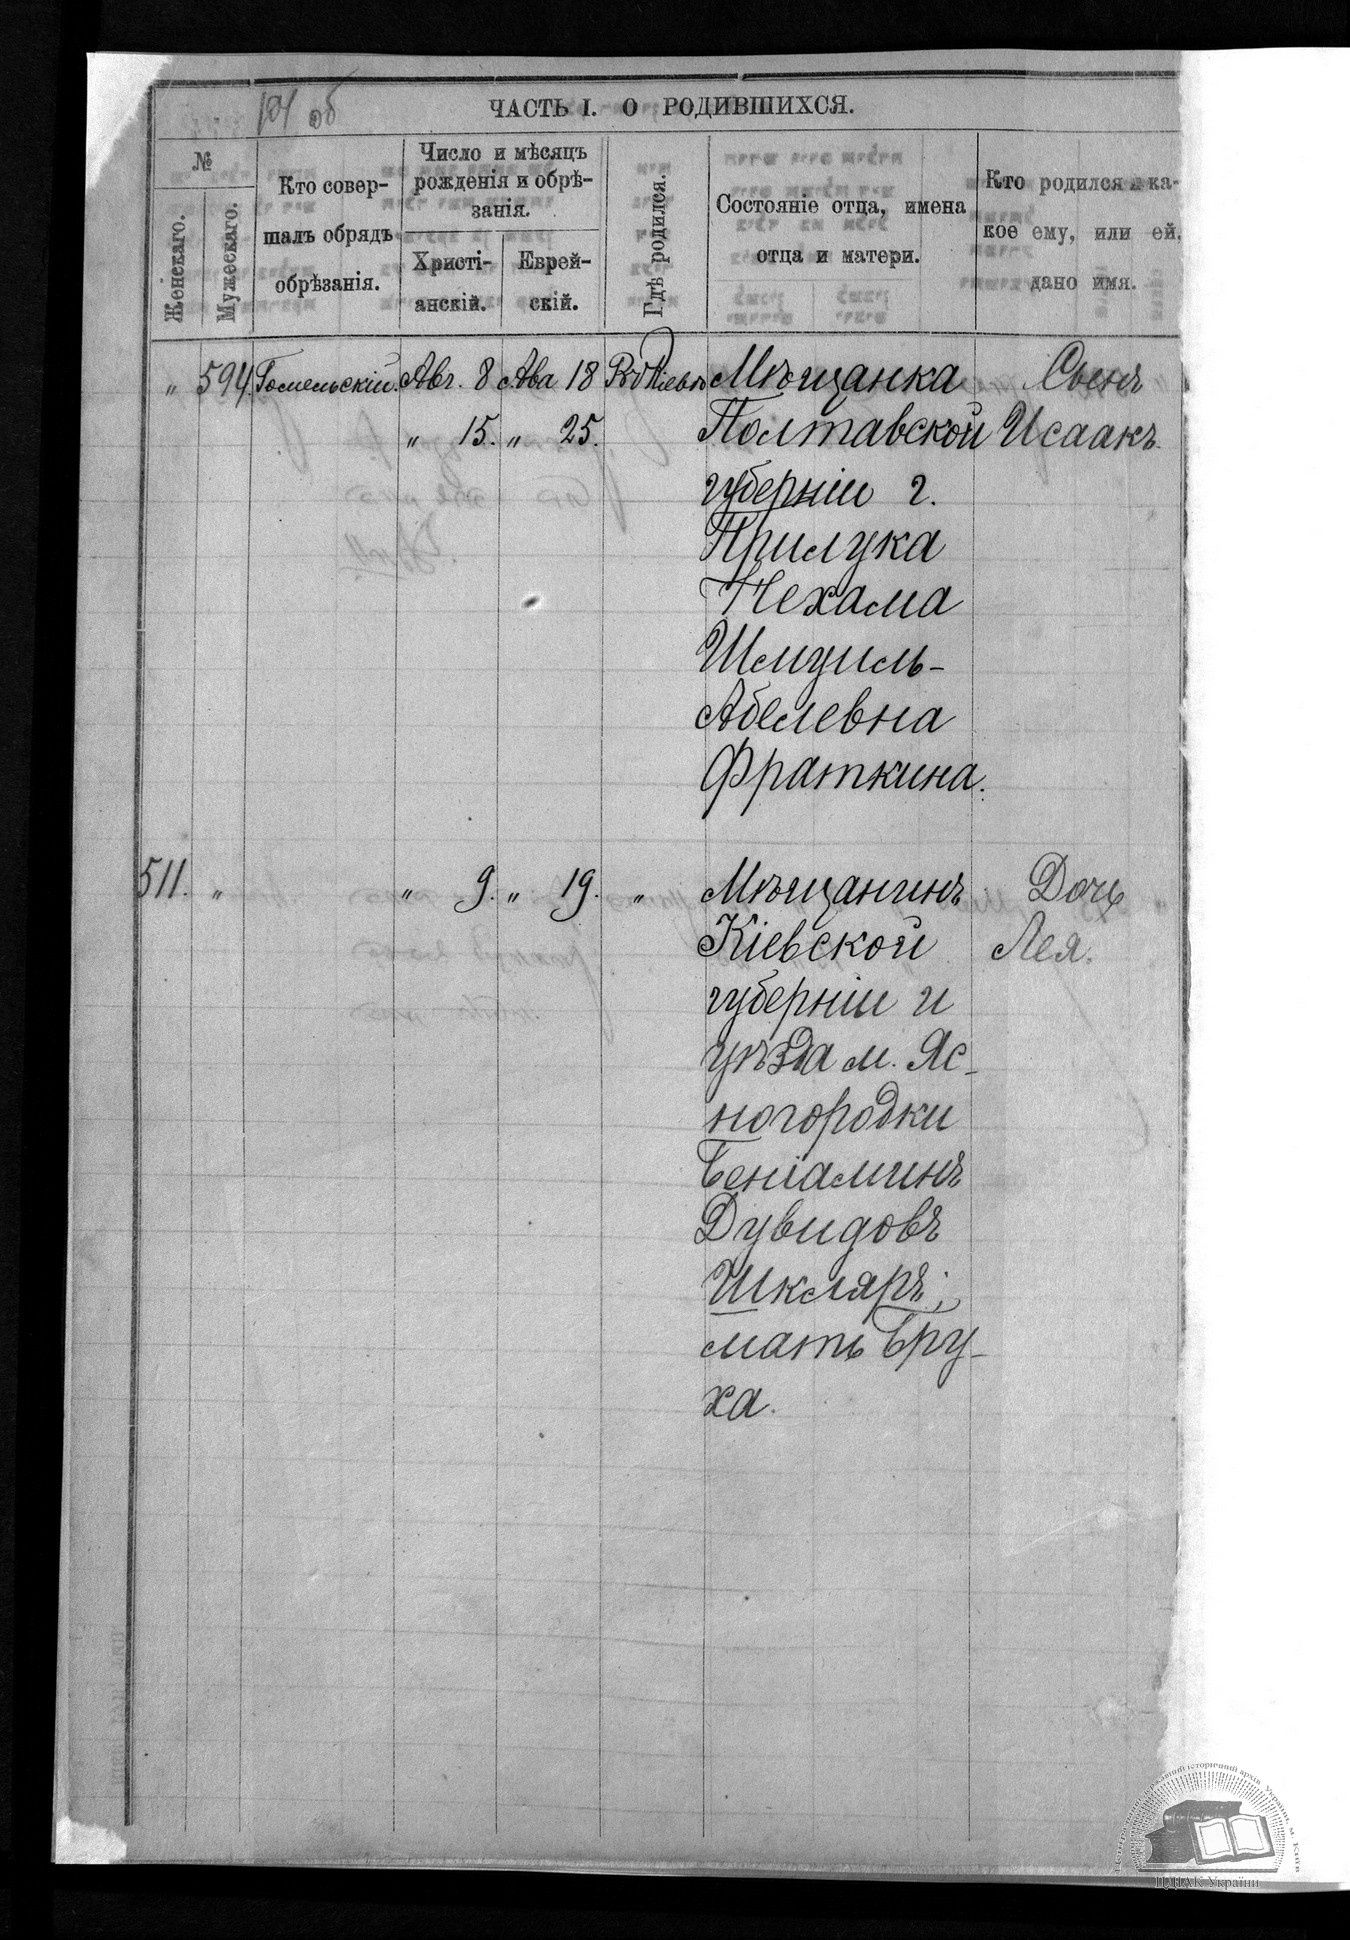 104 об
ЧАСТЬ I. О РОДИВШИХСЯ.
№
Женскаго.
Мужескаго.
Кто совер-
шалъ обрядъ
обрѣзанія.
Число и мѣсяцъ
рожденія и обрѣ-
занія.
Христі-
анскій.
Еврей-
скій.
Гдѣ родился.
Состояніе отца, имена
отца и матери.
Кто родился и ка-
кое ему, или ей,
дано имя.
" 594. Гомельскій. Авг. 8 Ава 18 Въ Кіевѣ Мѣщанка Сынъ
" 15. " 25. Полтавской Исаакъ.
губерніи г.
Прилука
Нехама
Шмуиль-
Абелевна
Фраткина.
511. " " 9. " 19. " Мѣщанинъ Дочь
Кіевской Лея.
губерніи и
уѣзда м. Яс-
ногородки
Беніаминъ
Дувидовъ
Шкляръ;
мать Бру-
ха.
ЦДІАК України